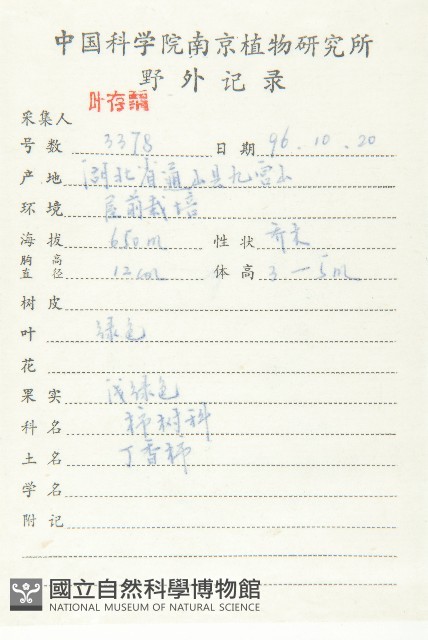 中国科学院南京植物研究所
野外记录
采集人 叶存粟
号数 3378 日期 96.10.20
产地 湖北省通山县九宫山
环境 屋前栽培
海拔 650m 性状 乔木
胸高直径 12cm 体高 3—5m
树皮
叶 绿色
花
果实 浅绿色
科名 柿树科
土名 丁香柿
学名
附记
國立自然科學博物館
NATIONAL MUSEUM OF NATURAL SCIENCE